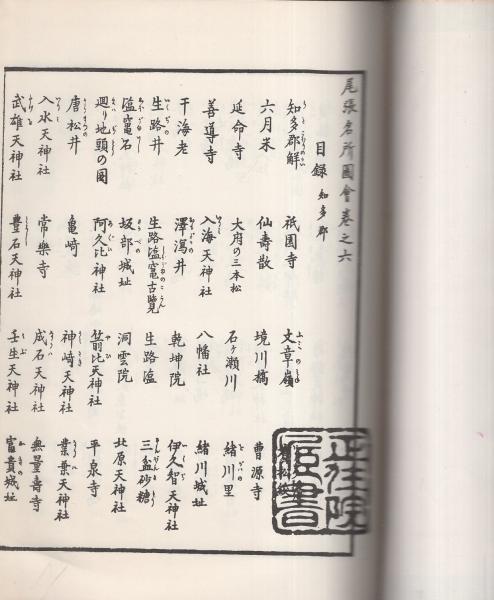 尾張名所圖會卷之六
目録 知多郡
知多郡解 祇園寺 文章嶺 曹源寺
六月米 仙壽散 境川橋
延命寺 大府の三本松 石ヶ瀬川 緒川里
善導寺 入海天神社 八幡社 緒川城址
干海老 澤瀉井 乾坤院 伊久智天神社
生路井 生路塩竈古覽 生路塩 三盆砂糖
塩竈石 坂部城址 洞雲院 北原天神社
廻り地頭の圖 阿久比神社 箭比天神社 平泉寺
唐松井 亀崎 神崎天神社 業葉天神社
入水天神社 常樂寺 成石天神社 無量壽寺
武雄天神社 豊石天神社 壬生天神社 富貴城址
正住院